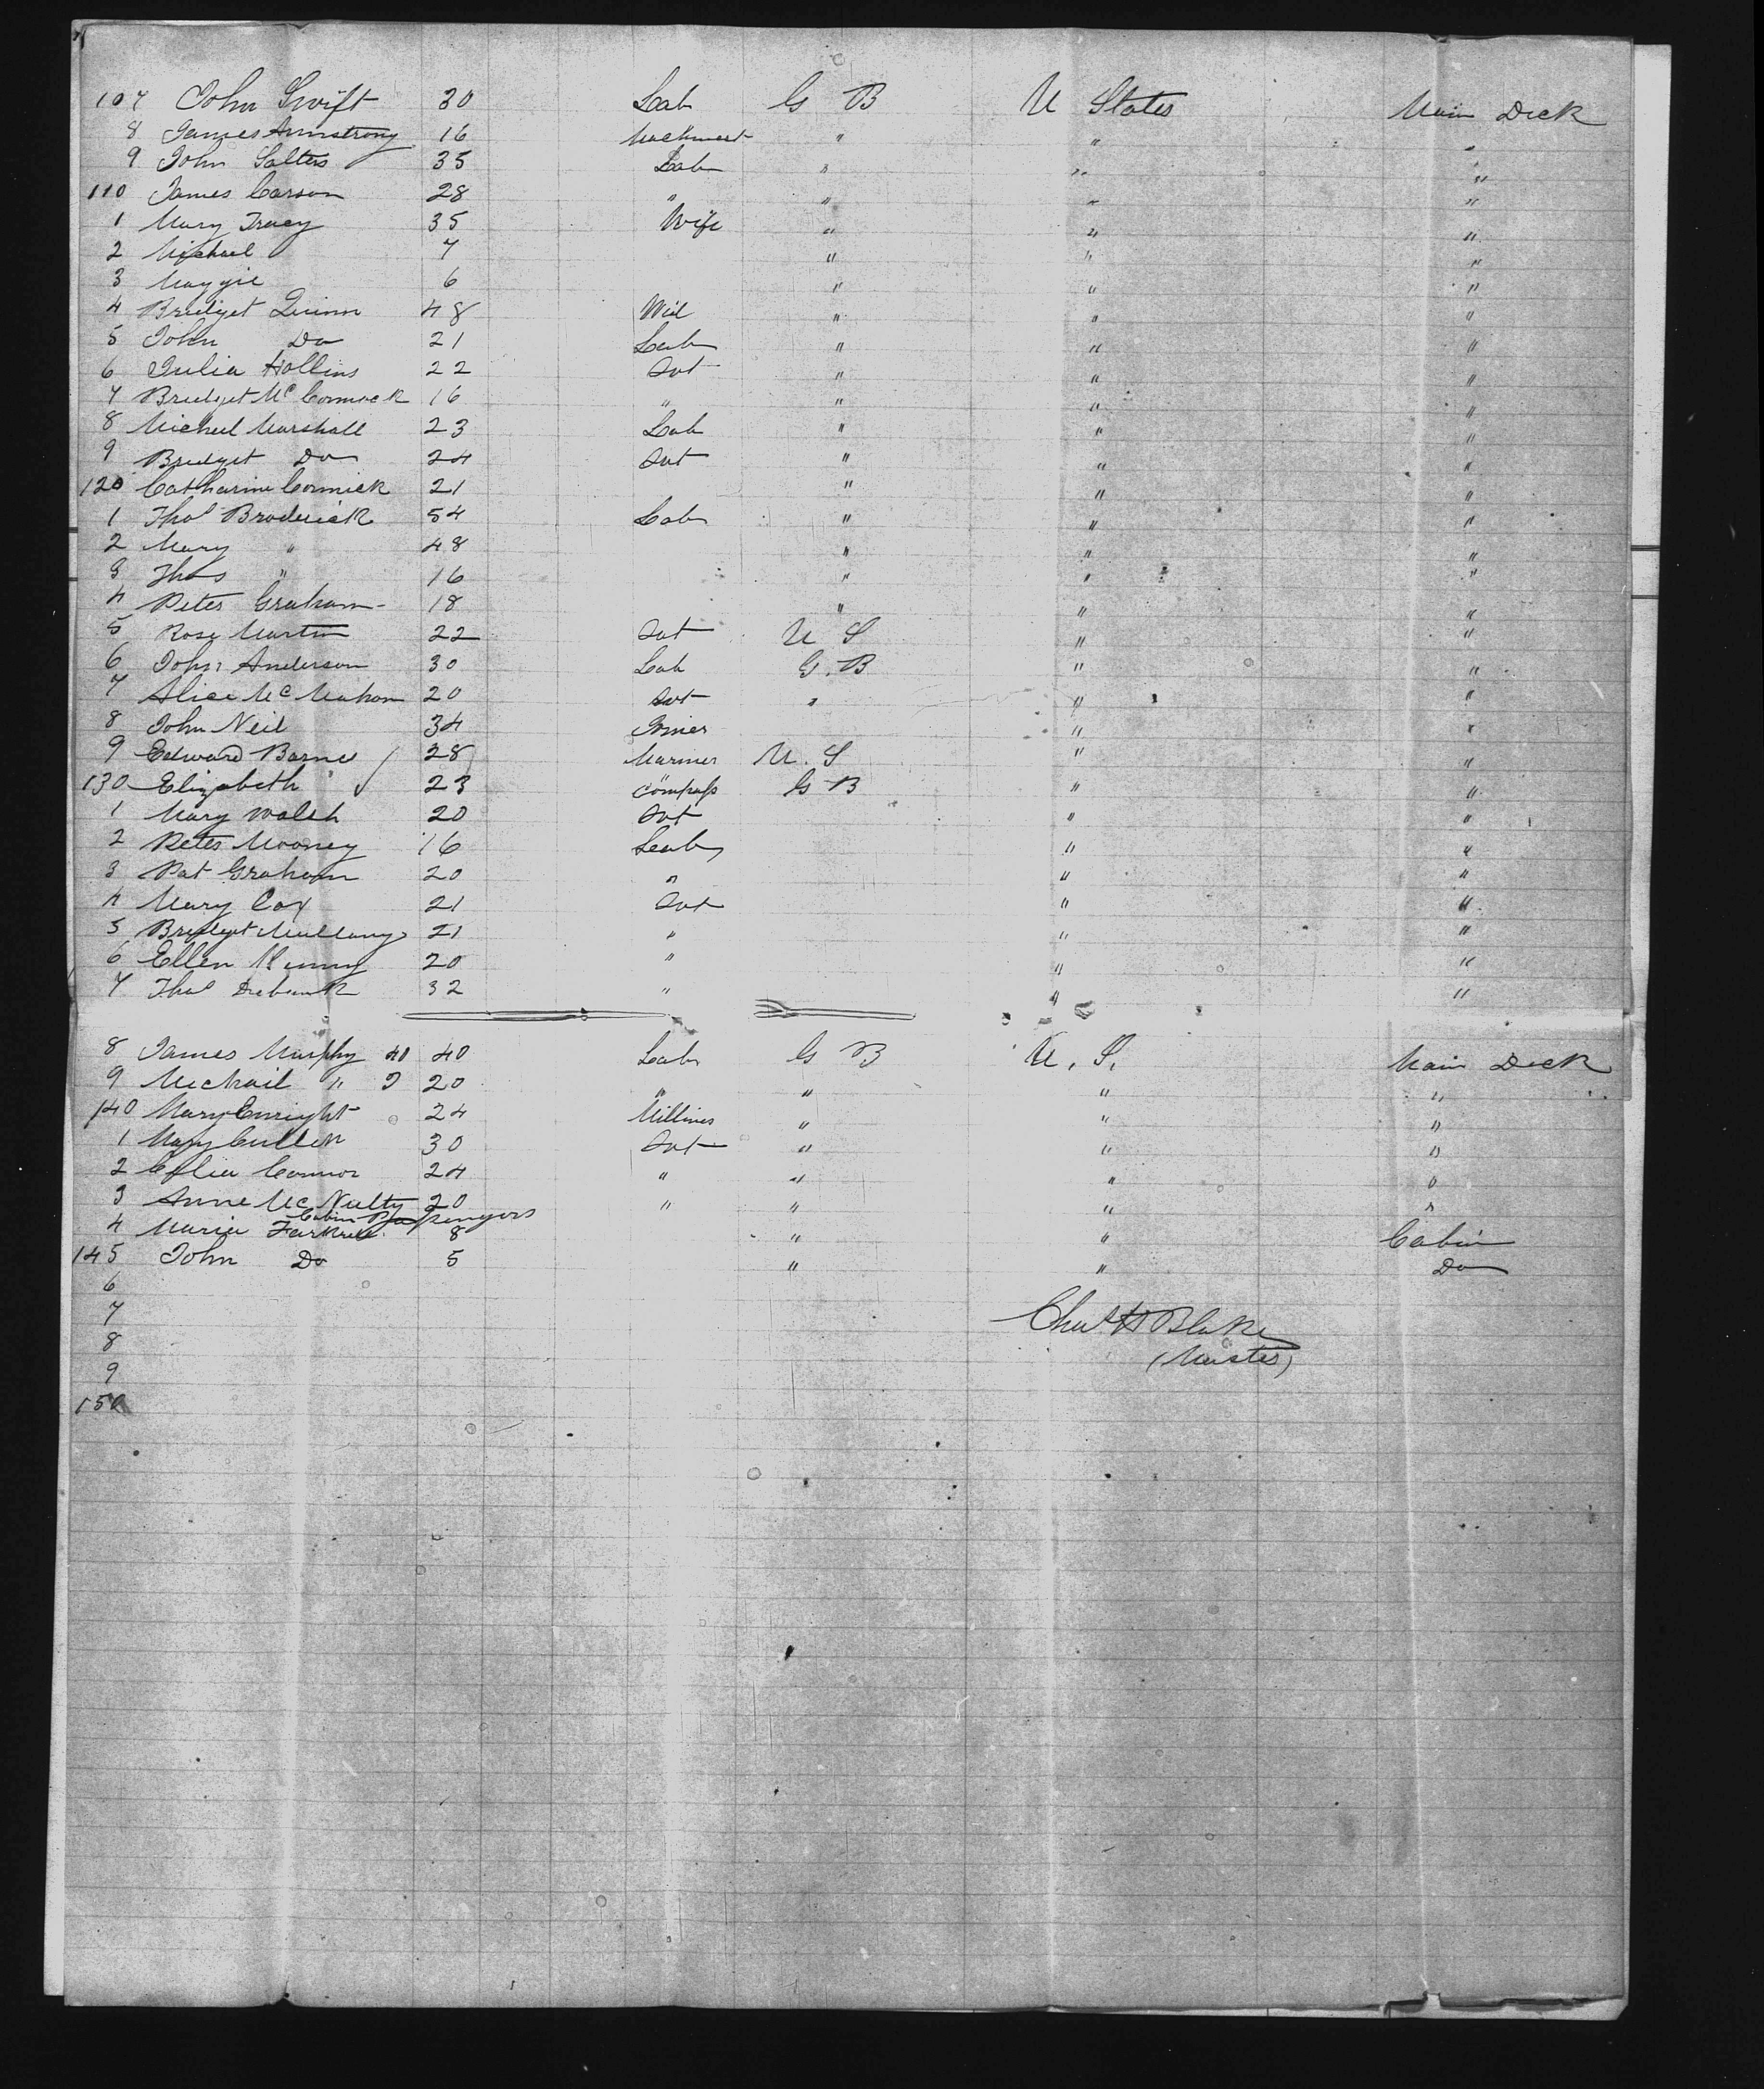 107 John Swift 30 Lab G B U States Main Deck
8 James Armstrong 16 " "
9 John Salters 35 Lab " " "
110 James Carson 28 " " " "
1 Mary Tracy 35 Wife " " "
2 Michael 7 " " "
3 Maggie 6 " " "
4 Bridget Quinn 48 Wid " " "
5 John Do 21 Lab " " "
6 Julia Hollins 22 Svt " " "
7 Bridget McCormack 16 " " " "
8 Micheel Marshall 23 Lab " " "
9 Bridget Do 24 Svt " " "
120 Catharine Cormick 21 " " "
1 Thos Broderick 54 Lab " " "
2 Mary " 48 " " "
3 Thos " 16 " " "
4 Peter Graham 18 " " "
5 Rose Martin 22 Svt U S " "
6 John Anderson 30 Lab G.B " "
7 Alice McMahon 20 Svt " " "
8 John Neil 34 Joiner " "
9 Edward Barne 28 Mariner U.S " "
130 Elizabeth 23 G B " "
1 Mary Walsh 20 Svt " "
2 Peter Mooney 16 Lab " "
3 Pat Graham 20 " " "
4 Mary Cox 21 Svt " "
5 Bridget Mullany 21 " " "
6 Ellen Kenny 20 " " "
7 Thos 32 " " "
8 James Murphy 40 40 Lab G B U.S. Main Deck
9 Michail " 20 " " " "
140 Mary Enright 24 Milliner " " "
1 Mary Cullen 30 Svt " " "
2 Celia Connor 24 " " " "
3 Anne McNulty 20 " " " "
Cabin Passengers
4 Maria Farrell 8 " " Cabin
145 John Do 5 " " Do
6
7 Chas H Blake
8
(Master)
9
150